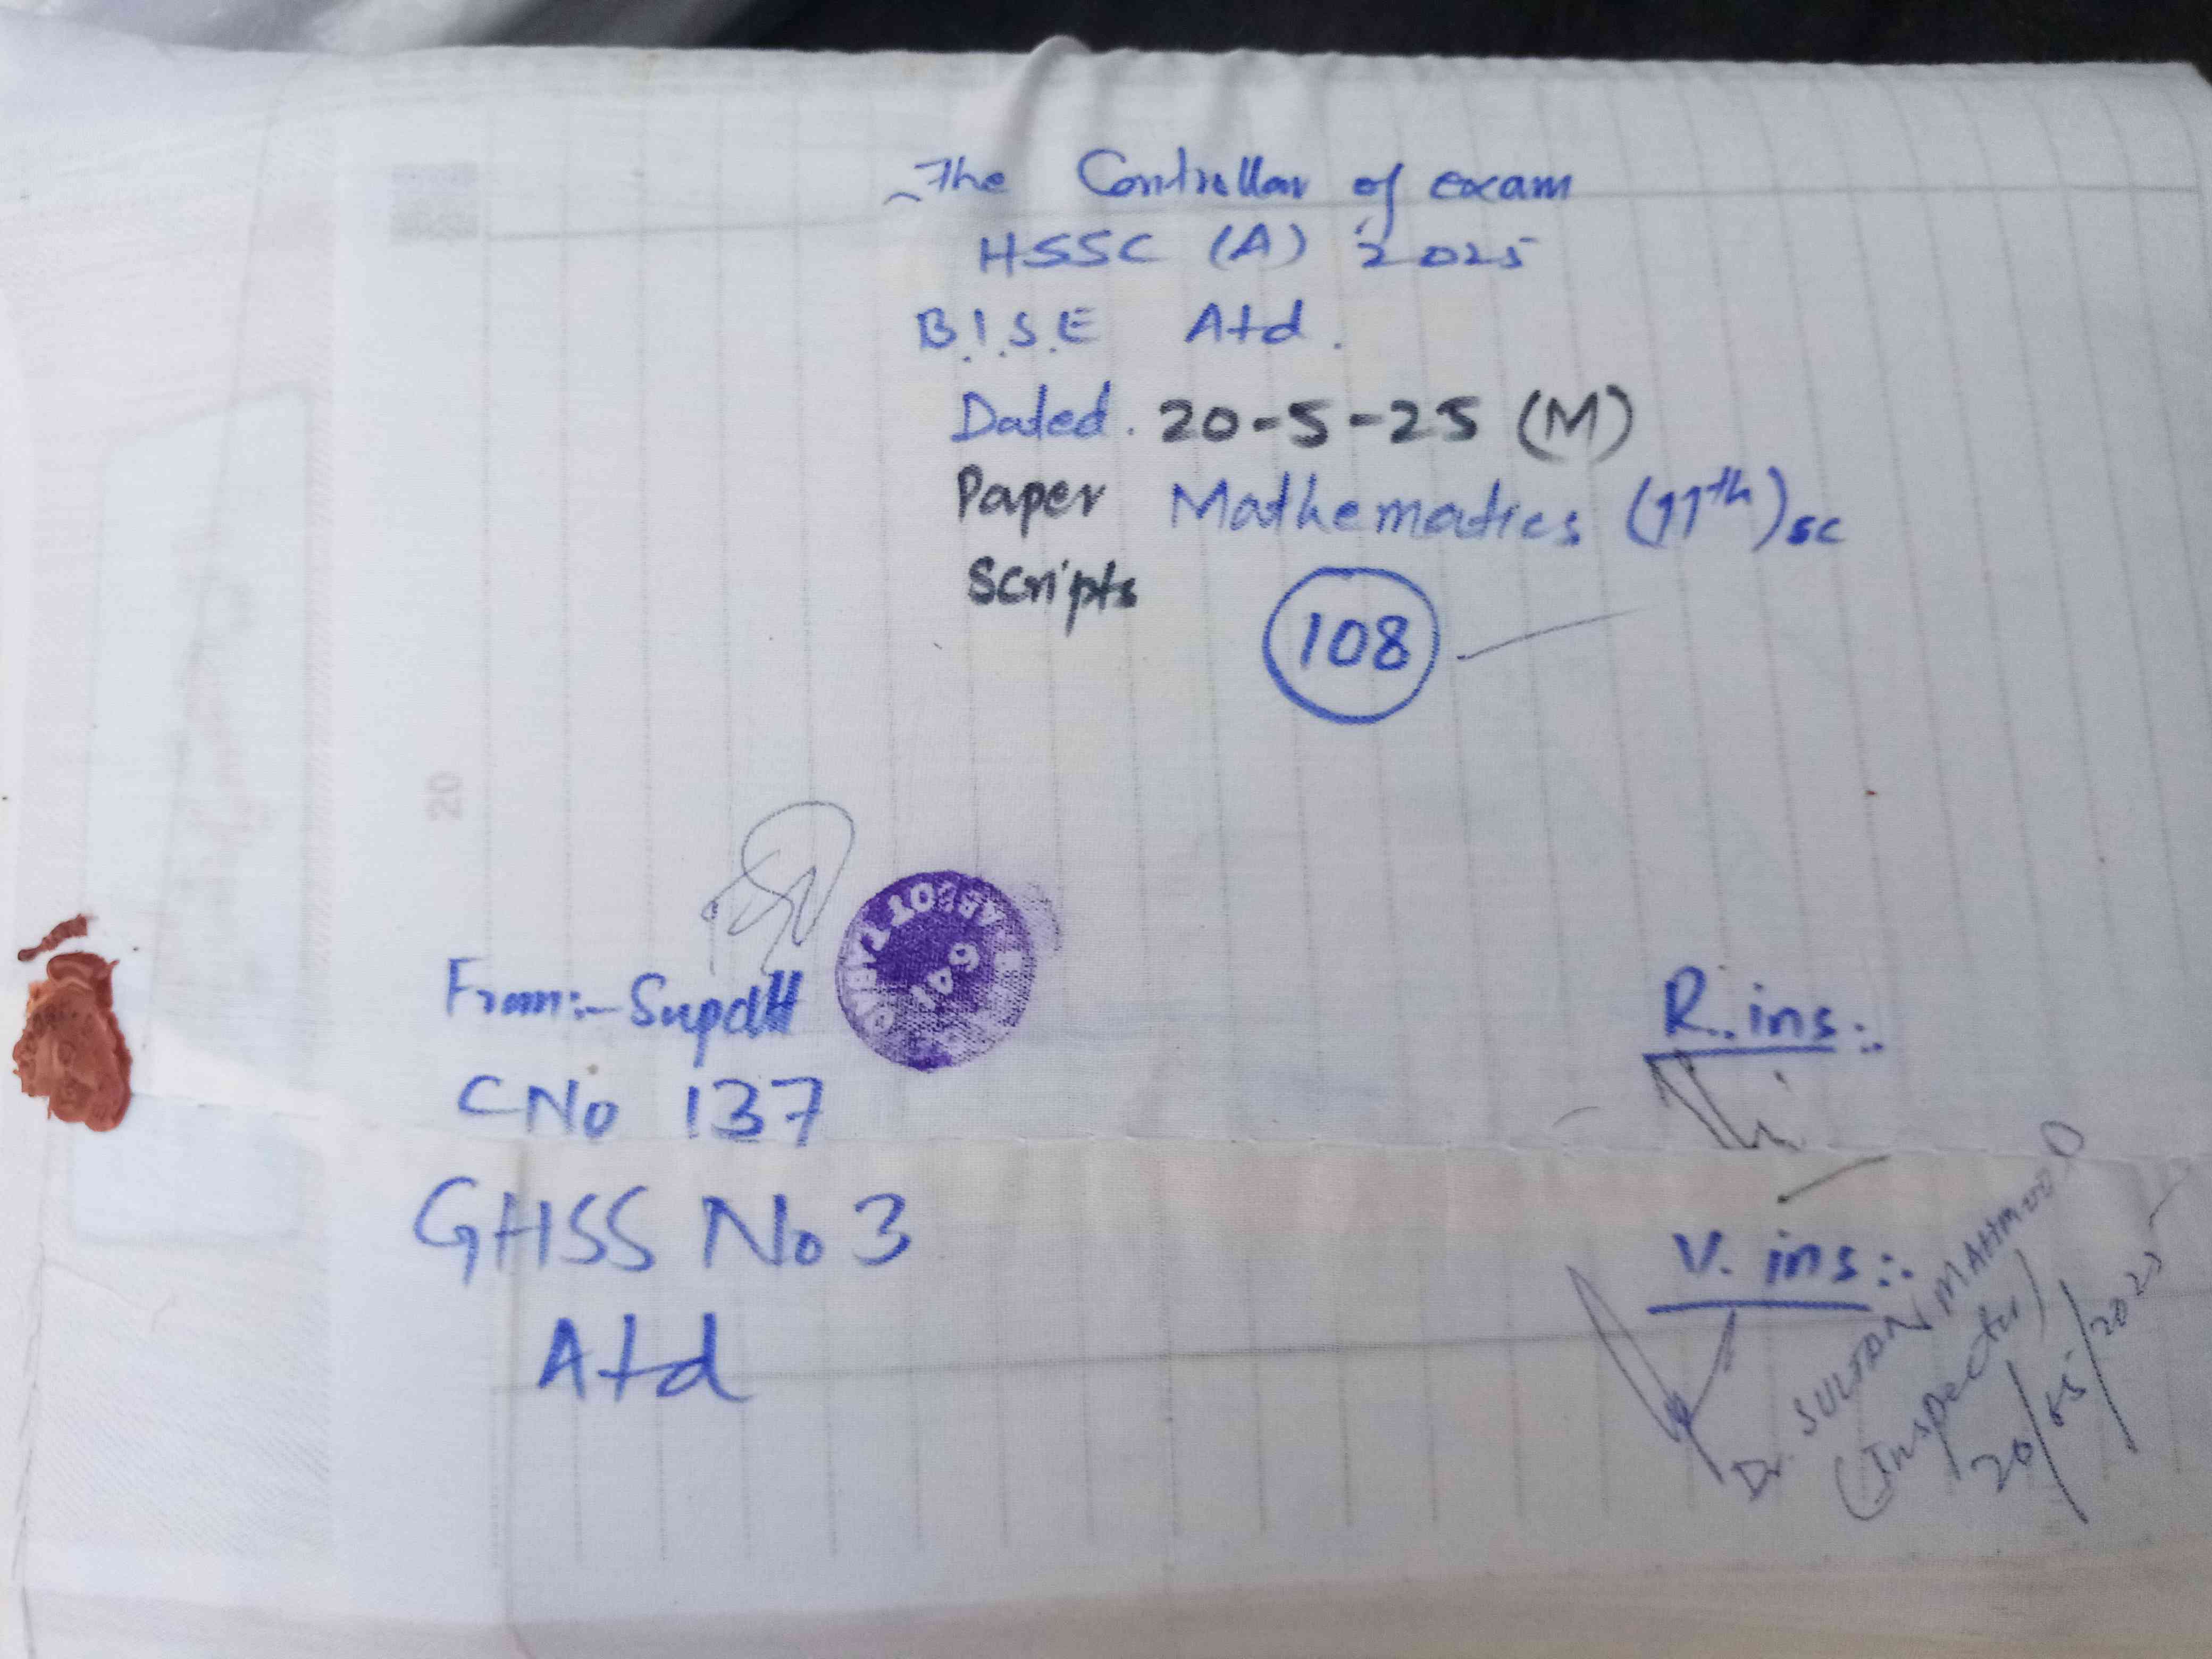 The Controller of exam
HSSC (A) 2025
B.I.S.E Atd.
Dated. 20-5-25 (M)
Paper Mathematics (11th) sc
Scripts
108
20
From:- Supdtt
C No 137
GHSS No 3
Atd
R. ins:
V. ins:
Dr. SULTAN MAHMOOD
(Inspector)
20/05/2025